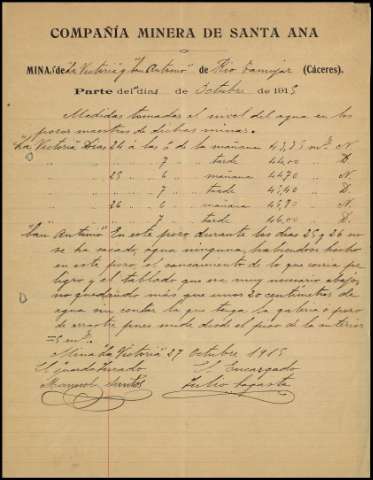 COMPAÑÍA MINERA DE SANTA ANA
MINAS de "La Victoria" y "San Antonio" de Rio Tamujar (Cáceres).
Parte del dia de Octubre de 1915
Medidas tomadas al nivel del agua en los
pozos maestros de dichas minas:
"La Victoria" Dias 24 á las 6 de la mañana 43,75 mts. N.
" " " " " 7 " " tarde 44,00 " D.
" " " 25 " 6 " " mañana 44,70 " N.
" " " " " 7 " " tarde 45,40 " D.
" " " 26 " 6 " " mañana 45,80 " N.
" " " " " 7 " " tarde 46,00 " D.
"San Antonio" En este pozo durante los dias 25 y 26 no
se ha sacado, agua ninguna, habiendose hecho
en este pozo el saneamiento de lo que corria pe-
ligro y el tablado que era muy necesario abajo,
no quedando más que unos 20 centimetros de
agua sin contar la que tenga la galeria o pozo
de arrastre pues mide desde el piso de la anterior
= 5 mts.
Mina "La Victoria" 27 Octubre 1915
El Guarda Jurado El Encargado
Manuel Santos Julio Sagasta